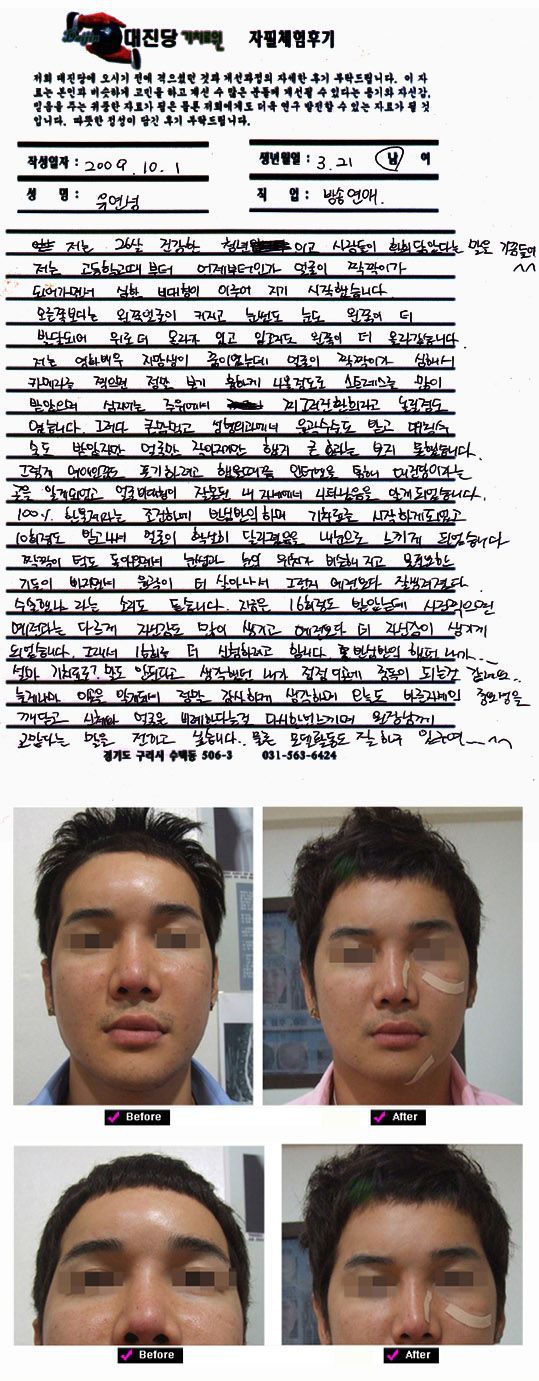 Beijin 대진당 기치료원 자필체험후기
저희 대진당에 오시기 전에 겪으셨던 것과 개선과정의 자세한 후기 부탁드립니다. 이 자
료는 본인과 비슷하게 고민을 하고 계신 수 많은 분들께 개선될 수 있다는 용기와 자신감,
믿음을 주는 귀중한 자료가 됨은 물론 저희에게도 더욱 연구 발전할 수 있는 자료가 될 것
입니다. 따뜻한 정성이 담긴 후기 부탁드립니다.
작성일자 : 2009.10.1 생년월일 : 3.21 남 여
성 명 : 유연성 직 업 : 방송연애.
저는 26살 건강한 청년 이고 사람들이 환희 닮았다는 말을 가끔들어
저는 고등학교때 부터 언제부터인가 얼굴이 짝짝이가
되어가면서 심한 비대형이 이루어 지기 시작했습니다.
오른쪽보다는 왼쪽얼굴이 커지고 눈썹도 눈도 왼쪽이 더
발달되어 위로 더 올라가 있고 입꼬리도 왼쪽이 더 올라갔습니다.
저는 영화배우 지망생이 꿈이었는데 얼굴이 짝짝이가 심해서
카메라를 찍으면 정말 보기 흉하게 나올정도로 스트레스를 많이
받았으며 심지어는 주위에서 찌그러진환희라고 놀릴정도
였습니다. 그러다 큰맘먹고 성형외과에서 윤곽수술도 받고
술도 받았지만 얼굴만 작아지기만 했지 큰 효과는 보지 못했습니다.
그렇게 연예인꿈도 포기하려고 했을때쯤 인터넷을 통해 대진당이라는
곳을 알게되었고 얼굴비대형이 잘못된 내 자세에서 나타났음을 알게되었습니다.
100% 환불제라는 조건하에 반신반의 하며 기치료를 시작하게되었고
10회정도 받고나서 얼굴이 확실히 달라졌음을 내눈으로 느끼게 되었습니다
짝짝이 턱도 돌아오면서 눈썹과 눈의 위치가 비슷해 지고
이 빠지면서 윤곽이 더 살아나서 그런지 예전보다 잘생겨졌다.
수술했냐 라는 소리도 듣습니다. 지금은 16회정도 받았는데 사진찍으면
예전과는 다르게 자신감도 많이 생기고 예전보다 더 자신감이 생기게
되었습니다. 그래서 1회를 더 신청하려고 합니다. 반신반의 했던 내가...
설마 기치료로? 말도 안된다고 생각했던 내가 점점 기치료에 중독이 되는것 같네요..
늦게나마 이곳을 알게되어 정말 감사하게 생각하며 오늘도 바른자세의 중요성을
깨닫고 신체와 얼굴은 비례한다는것 다시한번느끼며 원장님께
고맙다는 말을 전하고 싶습니다.. 물론 모델활동도 잘 하구 있구여 ~~ ^^
경기도 구리시 수택동 506-3 031-563-6424
Before After
Before After